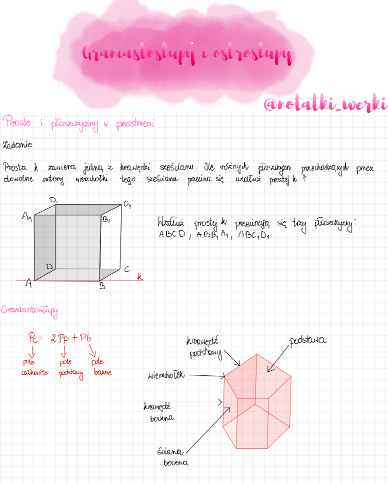 Graniastosłupy i ostrosłupy
@notatki_werki
Proste i płaszczyzny w przestrzeni
Zadanie
Prosta k zawiera jedną z krawędzi sześcianu. Ile różnych płaszczyzn przechodzących przez
dowolne cztery wierzchołki tego sześcianu przecina się wzdłuż prostej k?
D₁
C₁
A₁
B₁
D
C
A
B
k
Wzdłuż prostej k przecinają się trzy płaszczyzny:
ABCD, ABB₁A₁, ABC₁D₁
Graniastosłupy
Pc = 2Pp + Pb
pole całkowite
pole podstawy
pole boczne
krawędź podstawy
podstawa
wierzchołek
krawędź boczna
ściana boczna